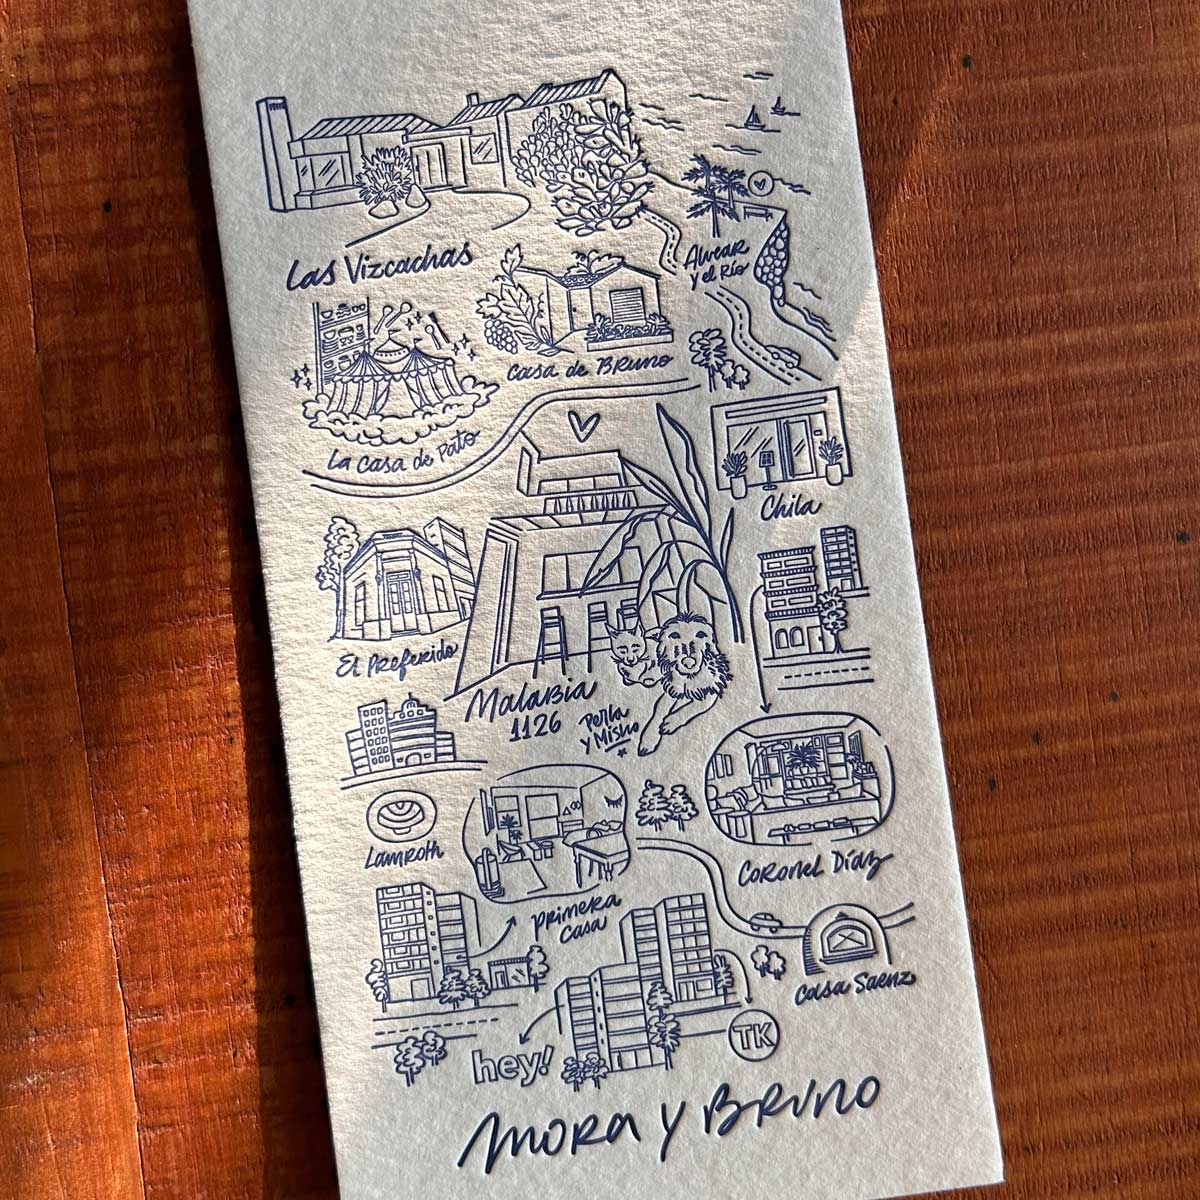 Las Vizcachas
Alvear
y el Río
Casa de Bruno
La casa de Pato
Chila
El Preferido
Malabia
1126
Perla
y Misho
Lamroth
Coronel Díaz
Primera
Casa
Casa Saenz
TK
hey!
Mora y Bruno